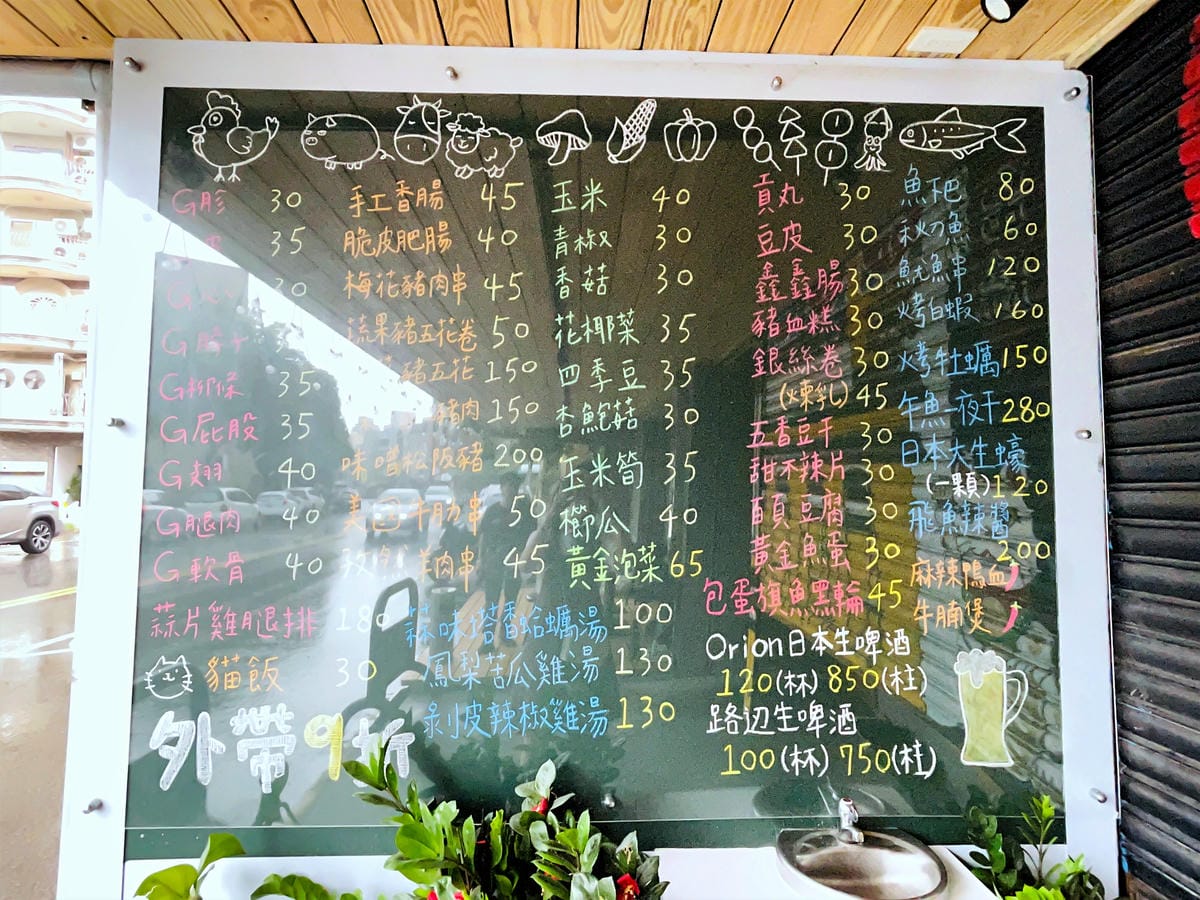 G胗 30
35
30
G
G柳條 35
G屁股 35
G翅 40
G腿肉 40
G軟骨 40
蒜片雞腿排 180
貓飯 30
外帶9折
手工香腸 45
脆皮肥腸 40
梅花豬肉串 45
蔬果豬五花卷 50
豬五花 150
豬肉 150
味噌松阪豬 200
美国牛肋串 50
羊肉串 45
蒜味塔香蛤蠣湯 100
鳳梨苦瓜雞湯 130
剝皮辣椒雞湯 130
玉米 40
青椒 30
香菇 30
花椰菜 35
四季豆 35
杏鮑菇 30
玉米筍 35
櫛瓜 40
黃金泡菜 65
貢丸 30
豆皮 30
鑫鑫腸 30
豬血糕 30
銀絲卷 30
(煉乳) 45
五香豆干 30
甜不辣片 30
百頁豆腐 30
黃金魚蛋 30
包蛋旗魚黑輪 45
Orion日本生啤酒
120(杯) 850(柱)
路边生啤酒
100(杯) 750(柱)
魚下巴 80
秋刀魚 60
魷魚串 120
烤白蝦 160
烤牡蠣 150
午魚一夜干 280
日本大生蠔
(一顆) 120
飛魚辣醬
200
麻辣鴨血
牛腩煲